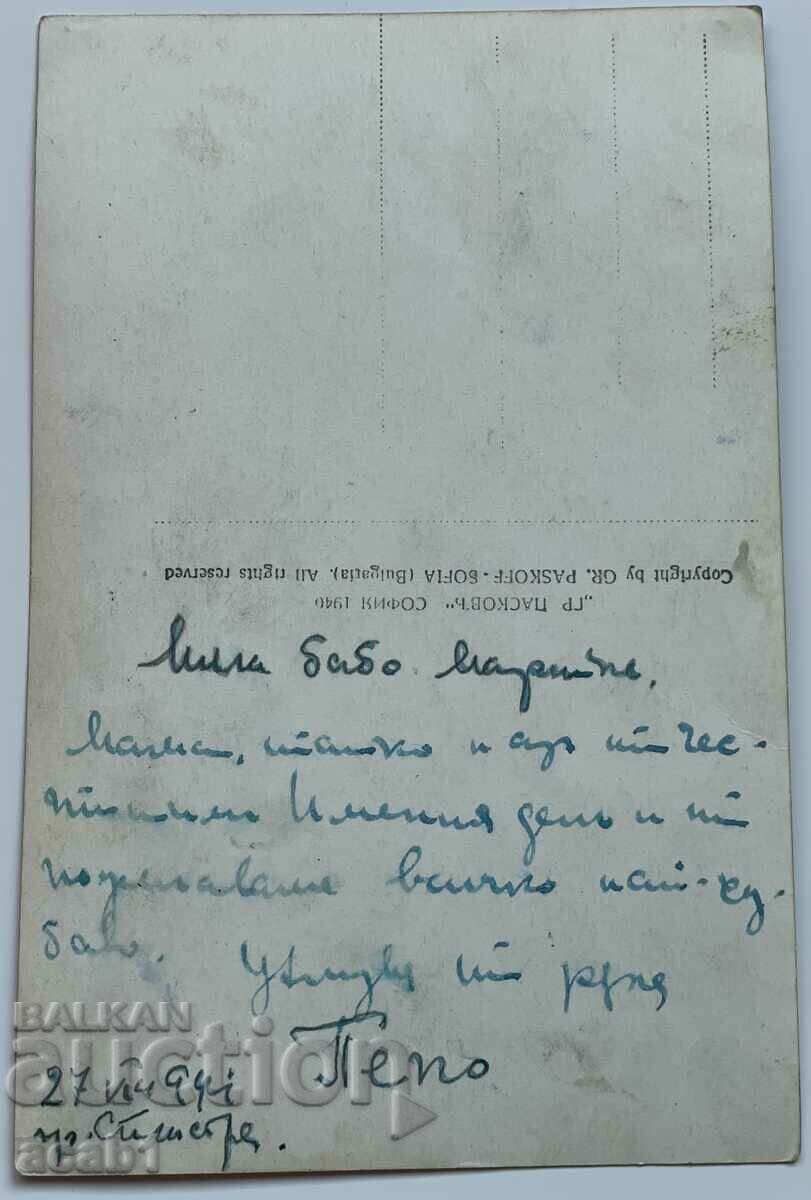 Copyright by GR. PASKOFF - SOFIA (Bulgaria). All rights reserved
„ГР ПАСКОВЪ“ СОФИЯ 1940
Мила бабо
Мама, татко и азъ ти чес-
титим Имения день и ти
пожелаваме всичко най-ху-
баво. Целувам ти ръка
Пепо
27 941
гр. Силистра.
BALKAN
auction
acab1